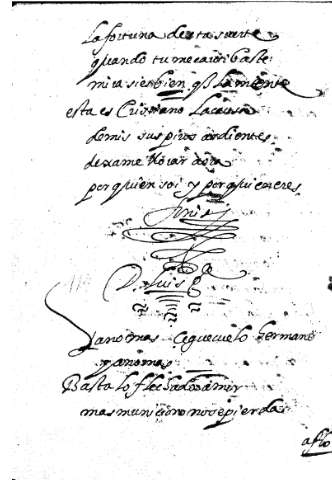 la fortuna desta suerte
quando tu me cautibaste
mira si es bien q̃ lamente
esta es Cristiano la causa
de mis suspiros ardientes
dexame llorar aora
por quien soi y por quien eres
finis
De Luis
Ya no mas Ceguezuelo hermano
ya no mas
Basta lo flechado a mi
mas munición no se pierda
aflo